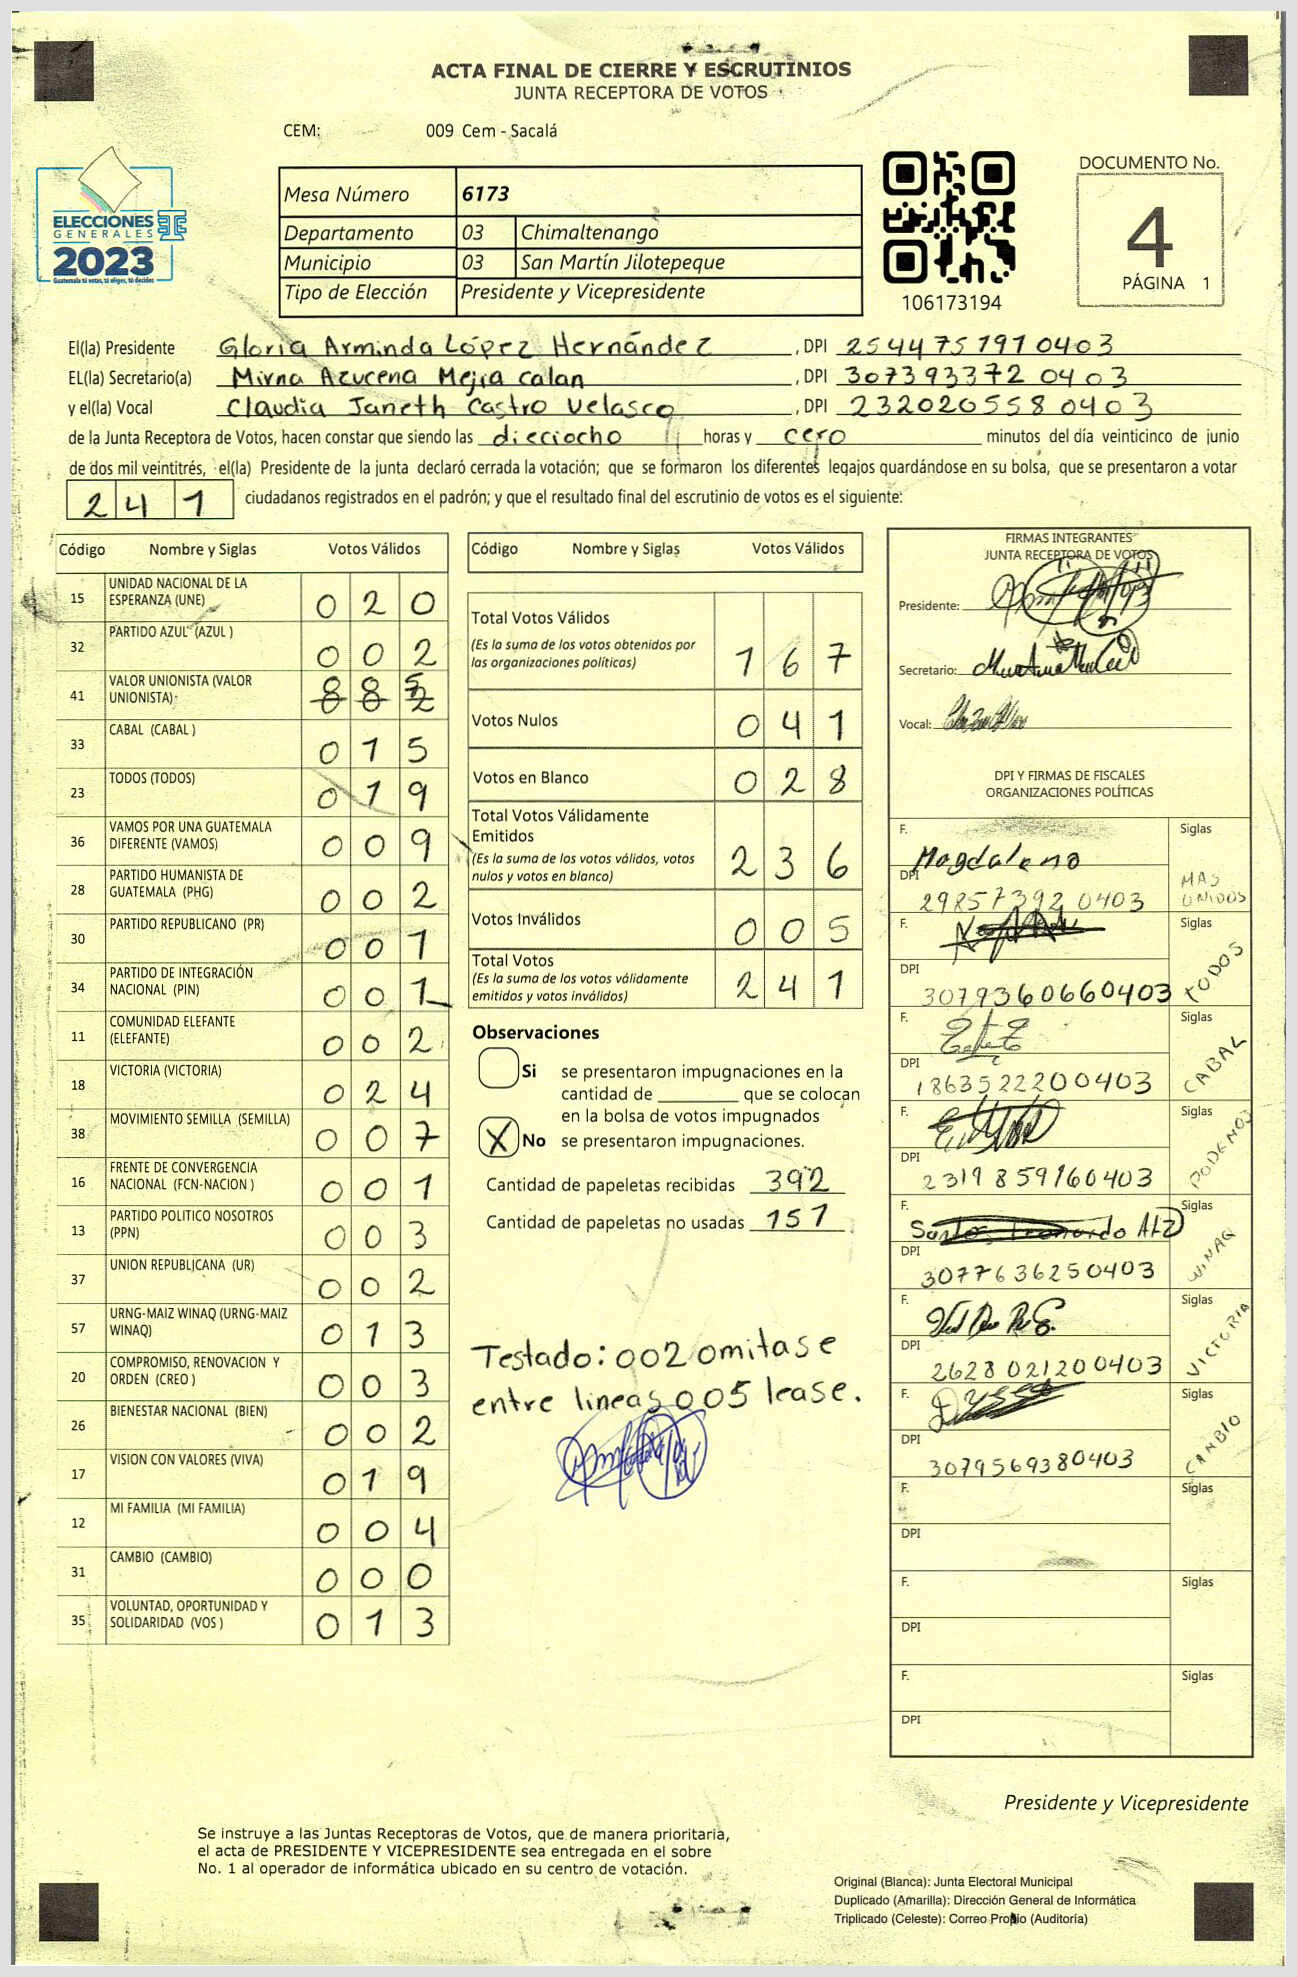 ACTA FINAL DE CIERRE Y ESCRUTINIOS
JUNTA RECEPTORA DE VOTOS
CEM: 009 Cem - Sacalá
ELECCIONES
GENERALES
2023
Guatemala tú votas, tú eliges, tú decides
Mesa Número 6173
Departamento 03 Chimaltenango
Municipio 03 San Martín Jilotepeque
Tipo de Elección Presidente y Vicepresidente
106173194
DOCUMENTO No.
4
PÁGINA 1
El(la) Presidente Gloria Arminda López Hernández , DPI 2544751910403
EL(la) Secretario(a) Mirna Azucena Mejia Calan , DPI 307393372 0403
y el(la) Vocal Claudia Janeth Castro Velasco , DPI 232020558 0403
de la Junta Receptora de Votos, hacen constar que siendo las dieciocho horas y cero minutos del día veinticinco de junio
de dos mil veintitrés, el(la) Presidente de la junta declaró cerrada la votación; que se formaron los diferentes legajos quardándose en su bolsa, que se presentaron a votar
241 ciudadanos registrados en el padrón; y que el resultado final del escrutinio de votos es el siguiente:
Código Nombre y Siglas Votos Válidos
15 UNIDAD NACIONAL DE LA ESPERANZA (UNE) 020
32 PARTIDO AZUL (AZUL ) 002
41 VALOR UNIONISTA (VALOR UNIONISTA)
33 CABAL (CABAL ) 015
23 TODOS (TODOS) 019
36 VAMOS POR UNA GUATEMALA DIFERENTE (VAMOS) 009
28 PARTIDO HUMANISTA DE GUATEMALA (PHG) 002
30 PARTIDO REPUBLICANO (PR) 001
34 PARTIDO DE INTEGRACIÓN NACIONAL (PIN) 001
11 COMUNIDAD ELEFANTE (ELEFANTE) 002
18 VICTORIA (VICTORIA) 024
38 MOVIMIENTO SEMILLA (SEMILLA) 007
16 FRENTE DE CONVERGENCIA NACIONAL (FCN-NACION ) 001
13 PARTIDO POLITICO NOSOTROS (PPN) 003
37 UNION REPUBLICANA (UR) 002
57 URNG-MAIZ WINAQ (URNG-MAIZ WINAQ) 013
20 COMPROMISO, RENOVACION Y ORDEN (CREO ) 003
26 BIENESTAR NACIONAL (BIEN) 002
17 VISION CON VALORES (VIVA) 019
12 MI FAMILIA (MI FAMILIA) 004
31 CAMBIO (CAMBIO) 000
35 VOLUNTAD, OPORTUNIDAD Y SOLIDARIDAD (VOS ) 013
Código Nombre y Siglas Votos Válidos
Total Votos Válidos 167
(Es la suma de los votos obtenidos por
las organizaciones políticas)
Votos Nulos 041
Votos en Blanco 028
Total Votos Válidamente
Emitidos 236
(Es la suma de los votos válidos, votos
nulos y votos en blanco)
Votos Inválidos 005
Total Votos 241
(Es la suma de los votos válidamente
emitidos y votos inválidos)
Observaciones
Si se presentaron impugnaciones en la
cantidad de ________ que se colocan
en la bolsa de votos impugnados
X No se presentaron impugnaciones.
Cantidad de papeletas recibidas 392
Cantidad de papeletas no usadas 151
Testado: 002 omitase
entre lineas 005 lease.
FIRMAS INTEGRANTES
JUNTA RECEPTORA DE VOTOS
Presidente:
Secretario:
Vocal:
DPI Y FIRMAS DE FISCALES
ORGANIZACIONES POLÍTICAS
F. Magdalena Siglas
DPI 298573920403 MAS UNIDOS
F. Siglas
DPI 3079360660403 TODOS
F. Siglas
DPI 1863522200403 CABAL
F. Siglas
DPI 2319859160403 PODEMOS
F. Siglas
DPI 3077636250403 WINAQ
F. Siglas
DPI 2628021200403 VICTORIA
F. Siglas
DPI 3079569380403 CAMBIO
F. Siglas
DPI
F. Siglas
DPI
F. Siglas
DPI
Presidente y Vicepresidente
Se instruye a las Juntas Receptoras de Votos, que de manera prioritaria,
el acta de PRESIDENTE Y VICEPRESIDENTE sea entregada en el sobre
No. 1 al operador de informática ubicado en su centro de votación.
Original (Blanca): Junta Electoral Municipal
Duplicado (Amarilla): Dirección General de Informática
Triplicado (Celeste): Correo Propio (Auditoría)